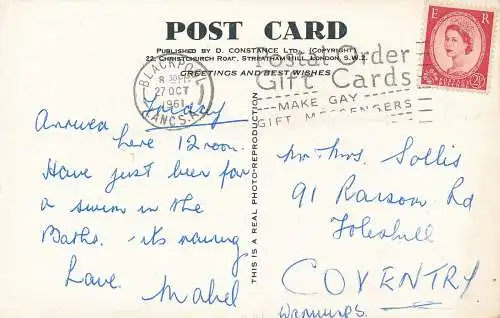 POST CARD
PUBLISHED BY D. CONSTANCE LTD., (COPYRIGHT)
22, CHRISTCHURCH ROAD, STREATHAM HILL, LONDON, S.W.2
GREETINGS AND BEST WISHES
BLACKPOOL
27 OCT
1961
LANCS. A
Postal Order
Gift Cards
MAKE GAY
GIFT MESSENGERS
E R
POSTAGE REVENUE
2½D
Friday
Arrived
here 12 noon.
Have just been for
a swim in the
Baths. its raining
Love. Mabel
THIS IS A REAL PHOTO-REPRODUCTION
Mr. Mrs. Sollis
91 Ransom Rd
Foleshill
COVENTRY